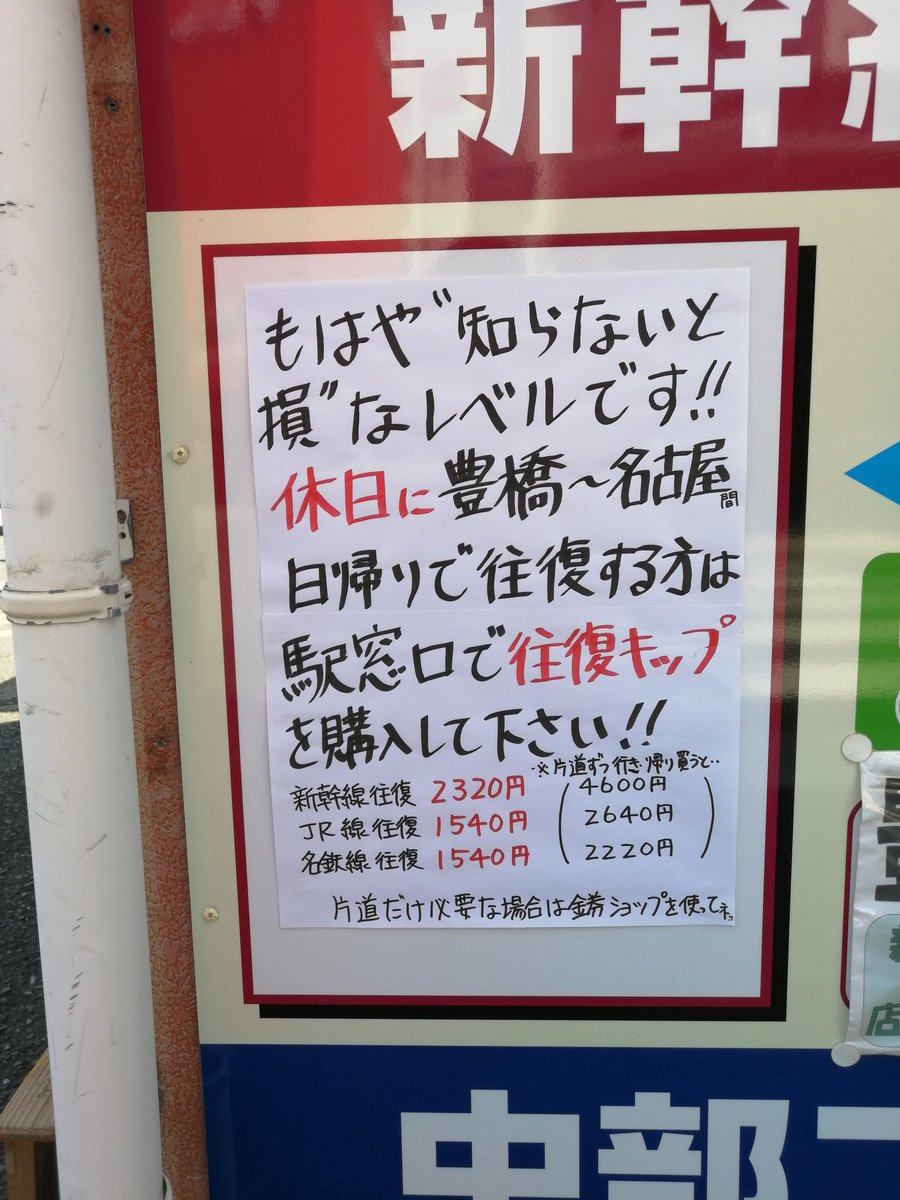 新幹
もはや"知らないと
損"なレベルです!!
休日に豊橋〜名古屋間
日帰りで往復する方は
駅窓口で往復キップ
を購入して下さい!!
※片道ずつ行き帰り買うと‥
新幹線往復 2320円 (4600円
JR線往復 1540円 2640円
名鉄線往復 1540円 2220円)
片道だけ必要な場合は金券ショップを使ってネッ
店
中部